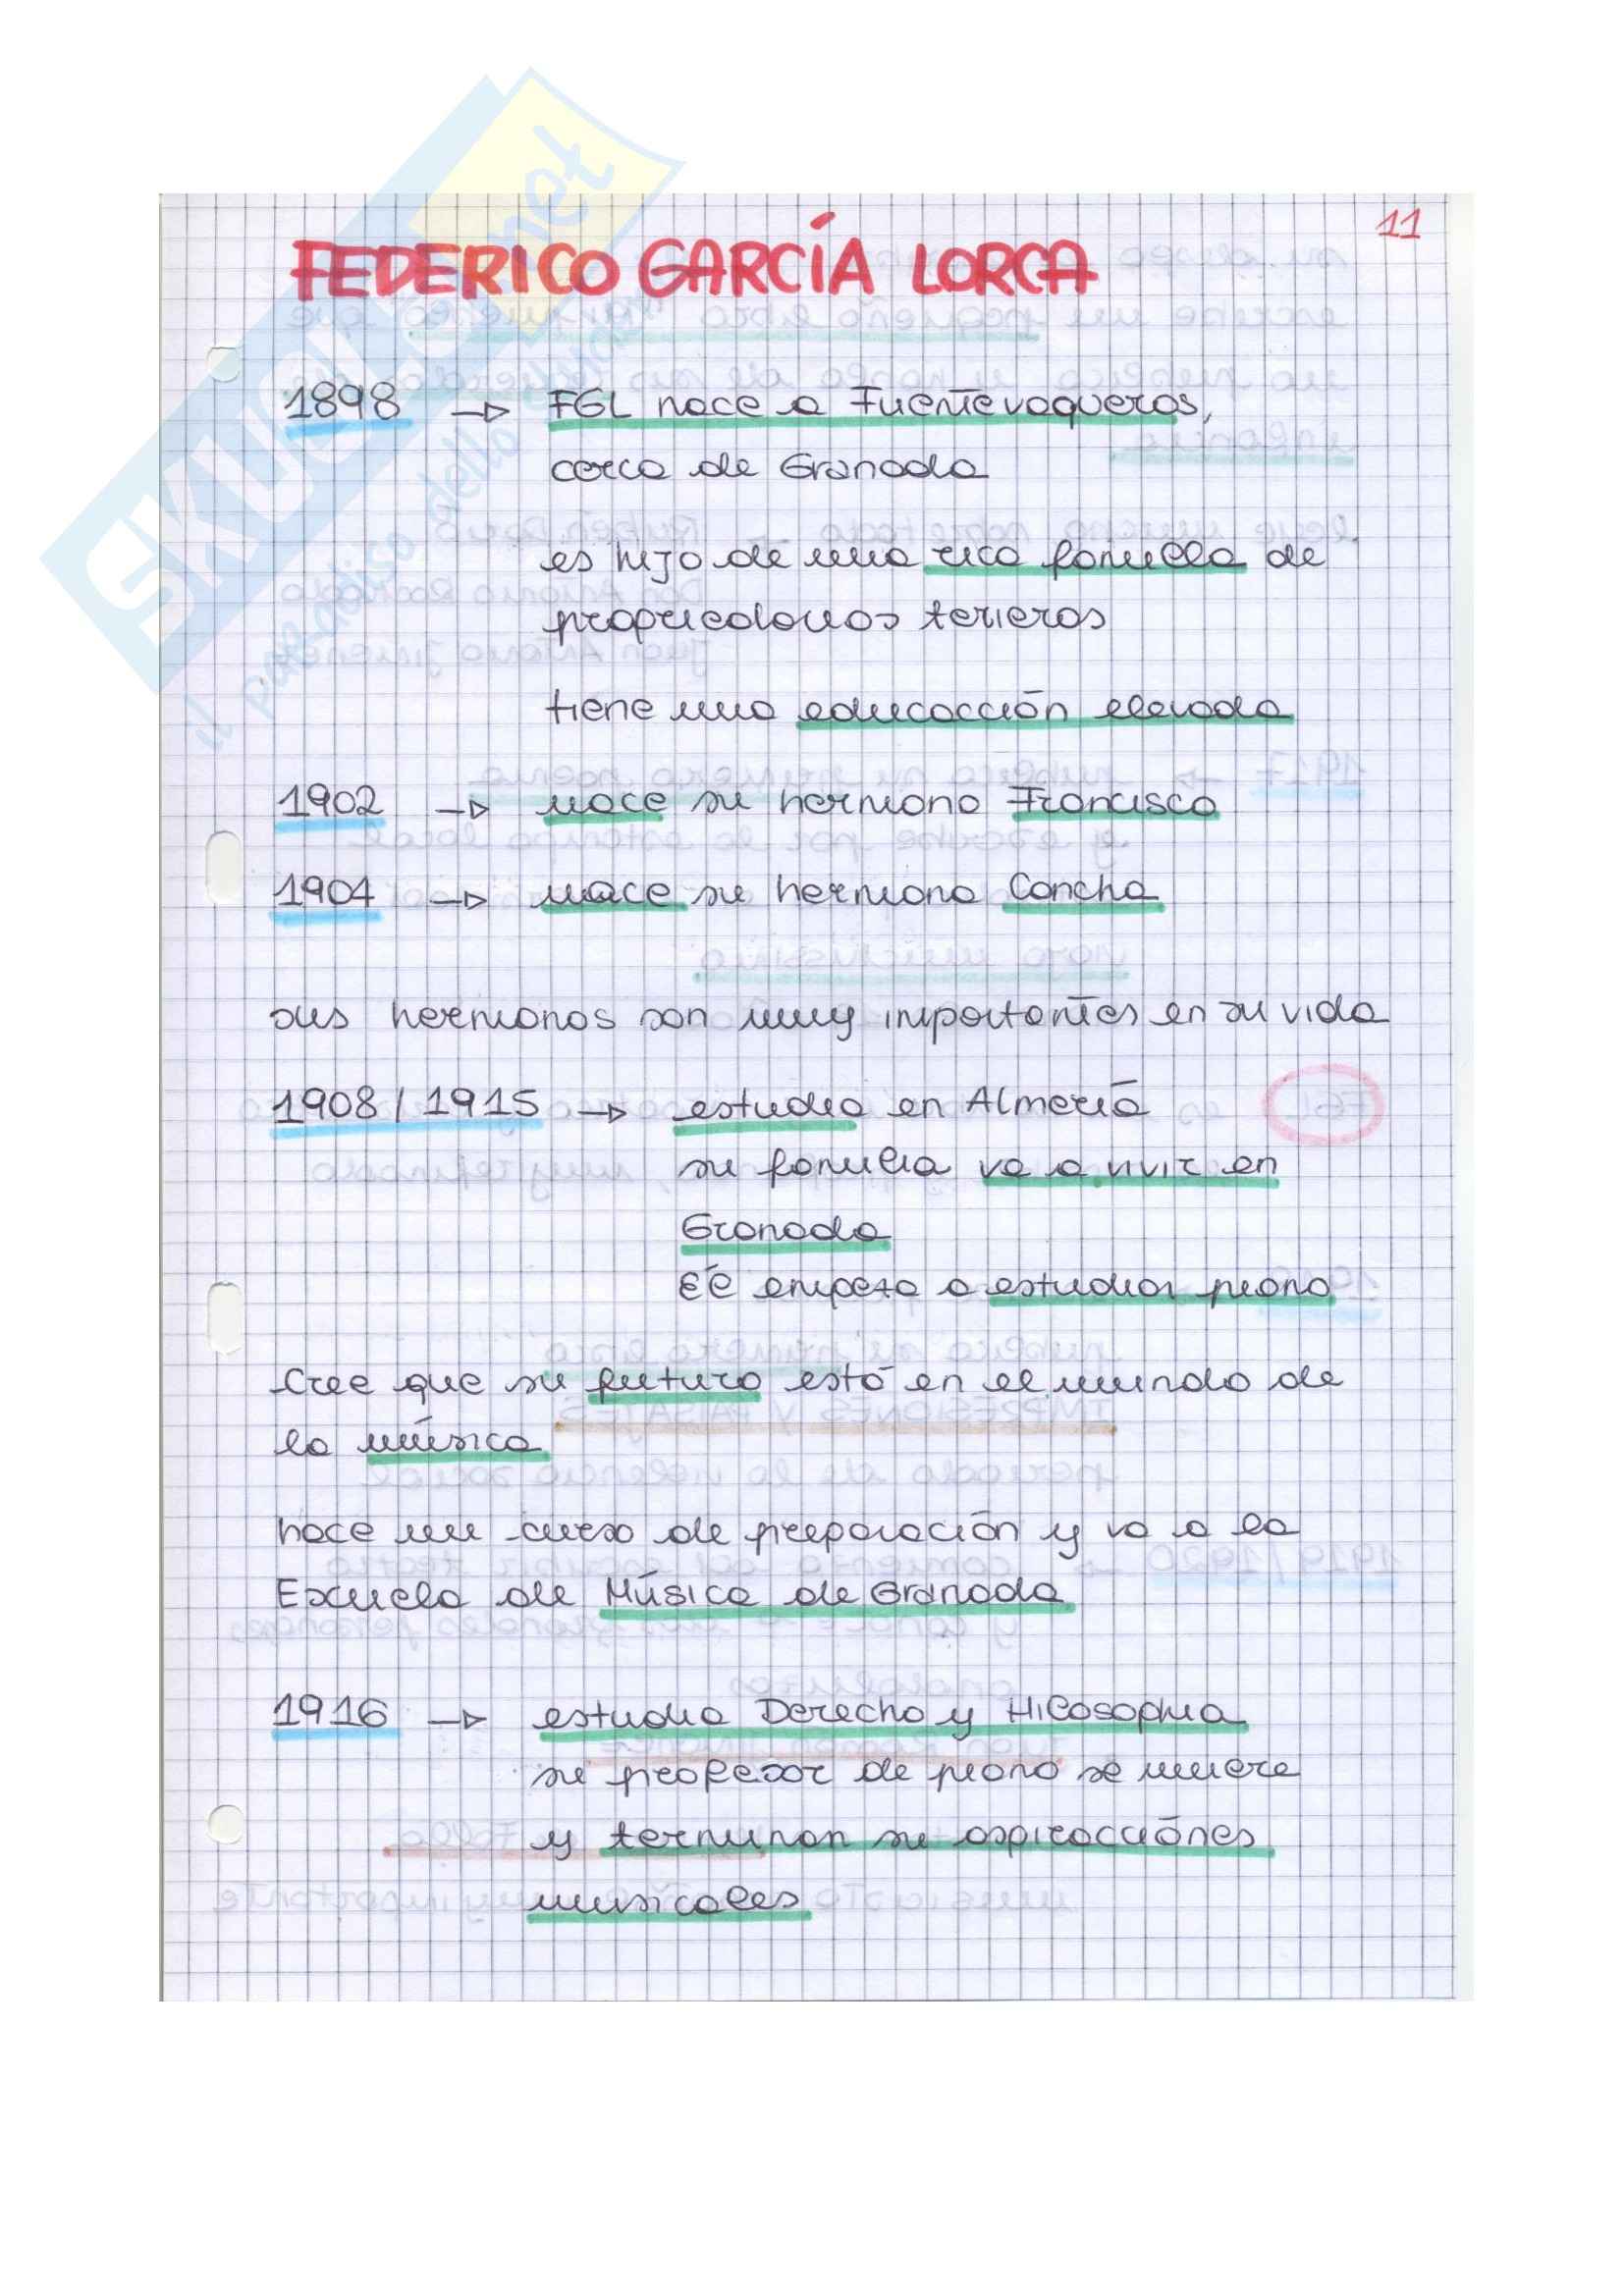 11
FEDERICO GARCÍA LORCA
1898 → FGL nace a Fuentevaqueros,
cerca de Granada
es hijo de una rica familla de
propriedarios terieros
tiene una educacción elevada
1902 → nace su hermano Francisco
1904 → nace su hermana Concha
sus hermanos son muy importantes en su vida
1908/1915 → estudia en Almería
su familia va a vivir en
Granada
Él empeza a estudiar piano
Cree que su futuro está en el mundo de
la música
hace un curso de preparación y va a la
Escuela de Música de Granada
1916 → estudia Derecho y Hilosophia
su profesor de piano se muere
y terminan su aspiracciónes
musicales
SKUOLA.net
il paradiso dello studente